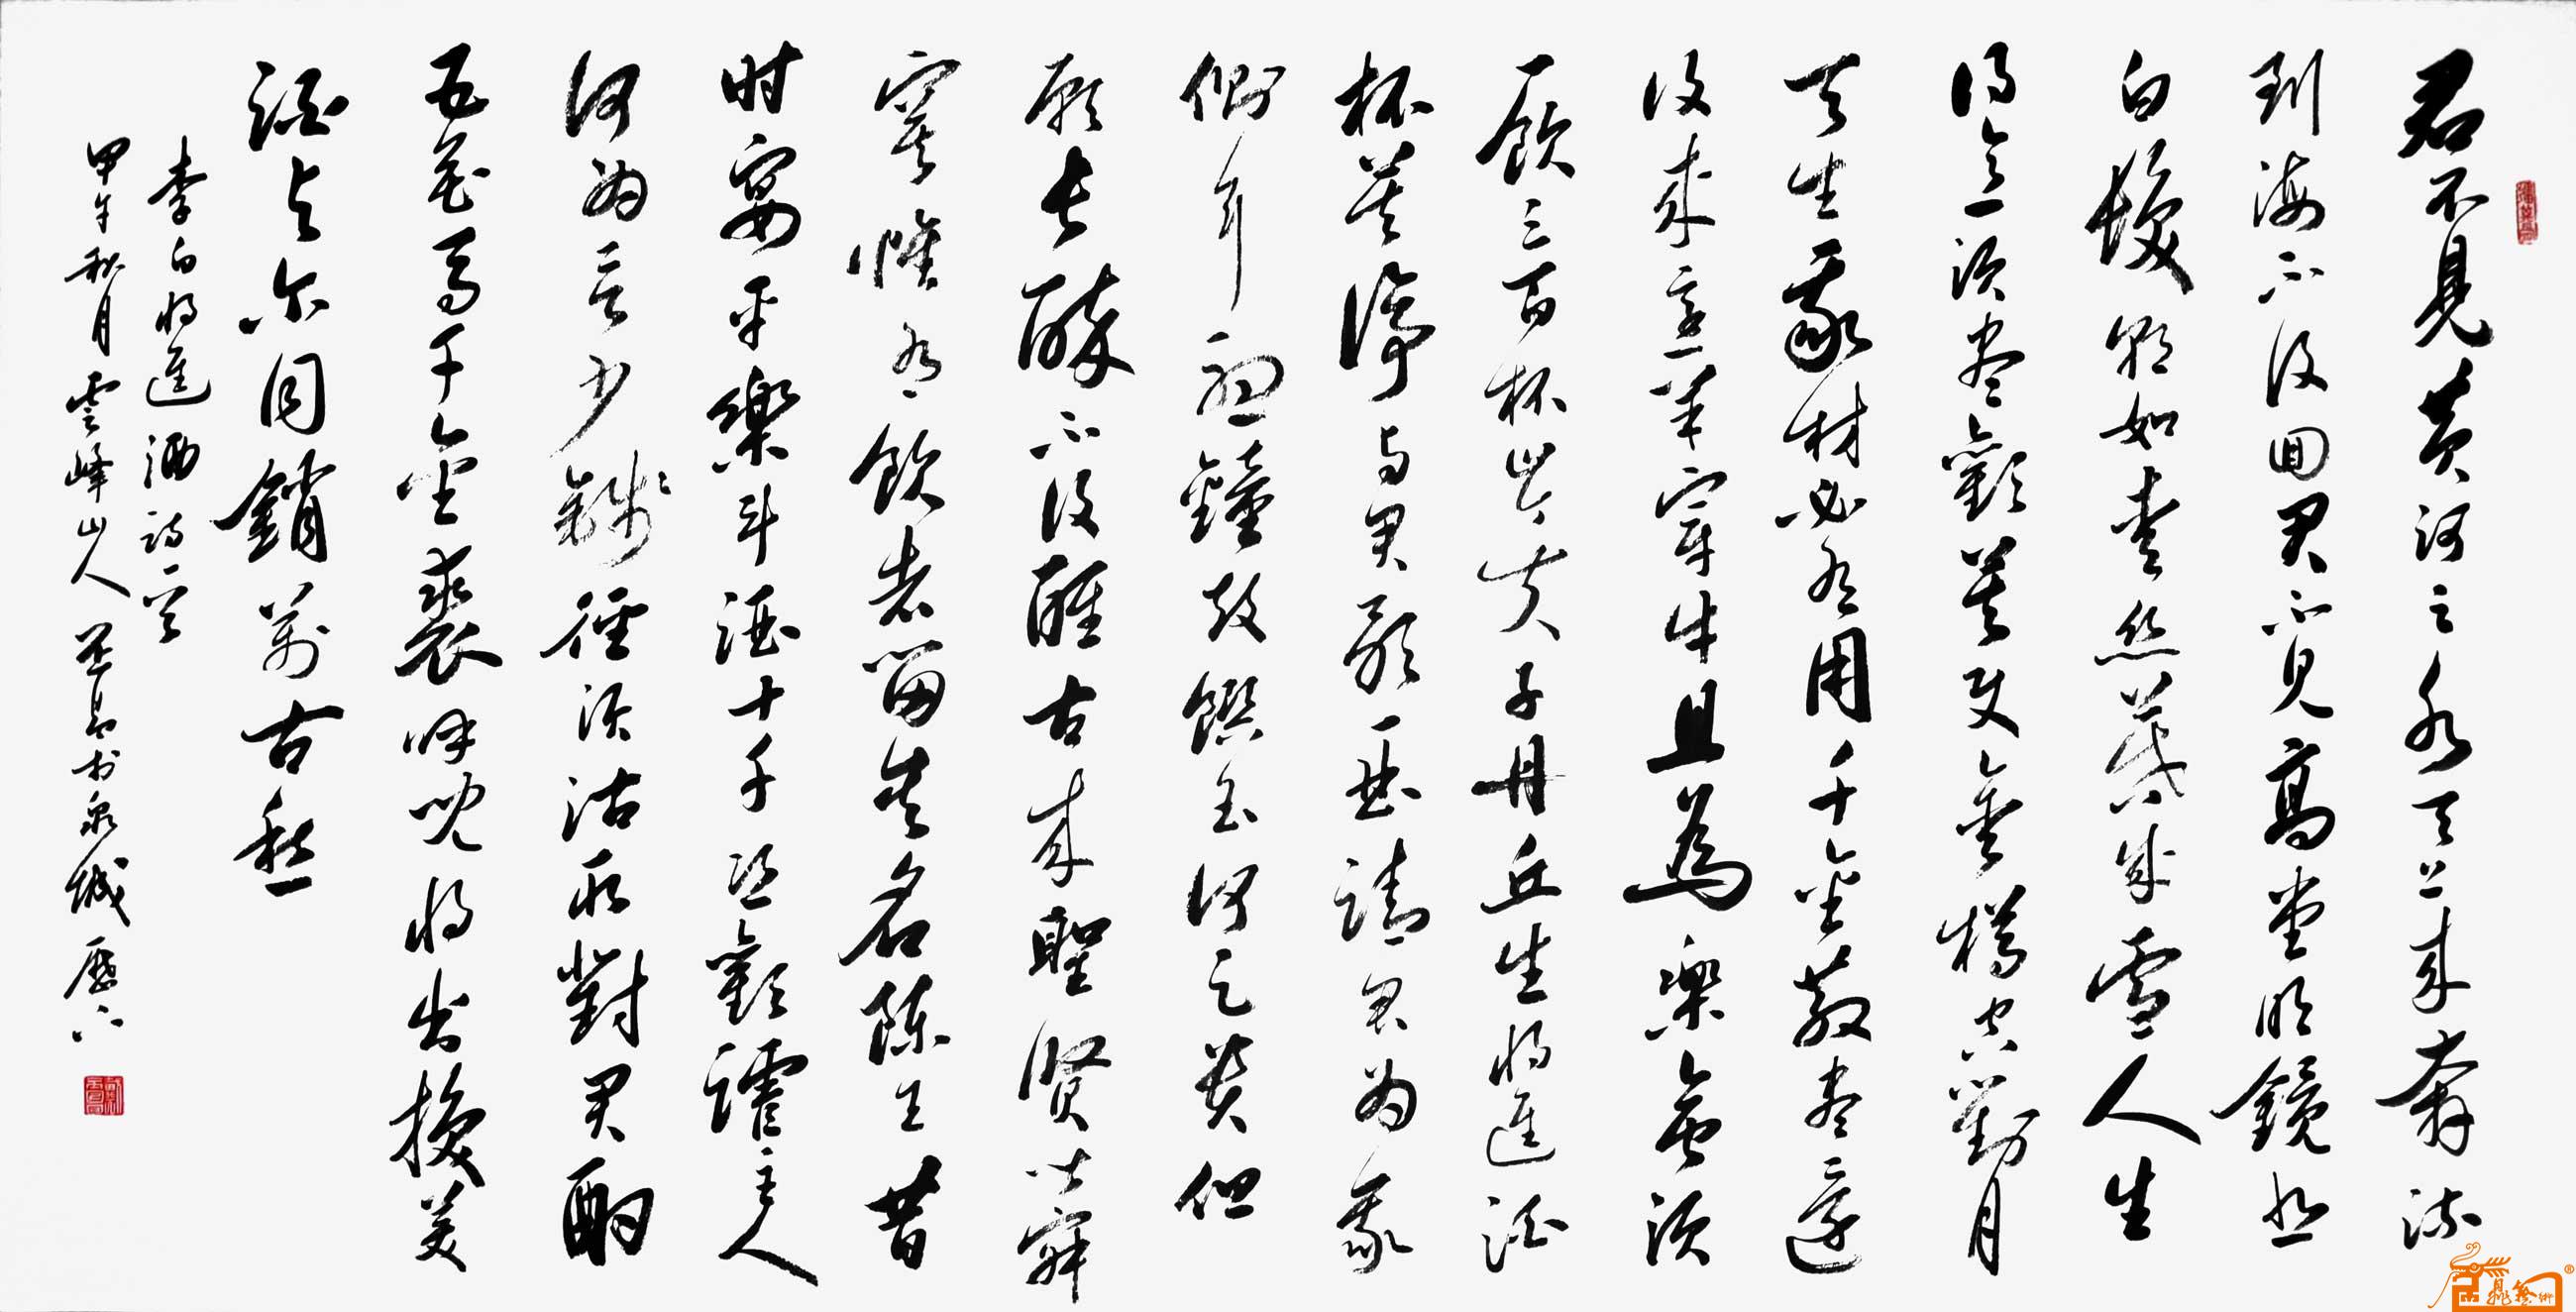 君不見黄河之水天上来奔流
到海不復回君不見高堂明鏡悲
白髮朝如青丝暮成雪人生
得意須盡歡莫使金樽空對月
天生我材必有用千金散盡還
復来烹羊宰牛且為樂會須
一飲三百杯岑夫子丹丘生將進酒
杯莫停与君歌一曲請君为我
側耳聽鐘鼓饌玉何足贵但
願長醉不復醒古来聖贤皆寂
寞惟有飲者留其名陳王昔
时宴平樂斗酒十千恣歡謔主人
何为言少錢徑須沽取對君酌
五花馬千金裘呼兒將出换美
酒与尔同銷萬古愁
李白將進酒詩一首
甲午秋月雲峰山人书泉城歷下